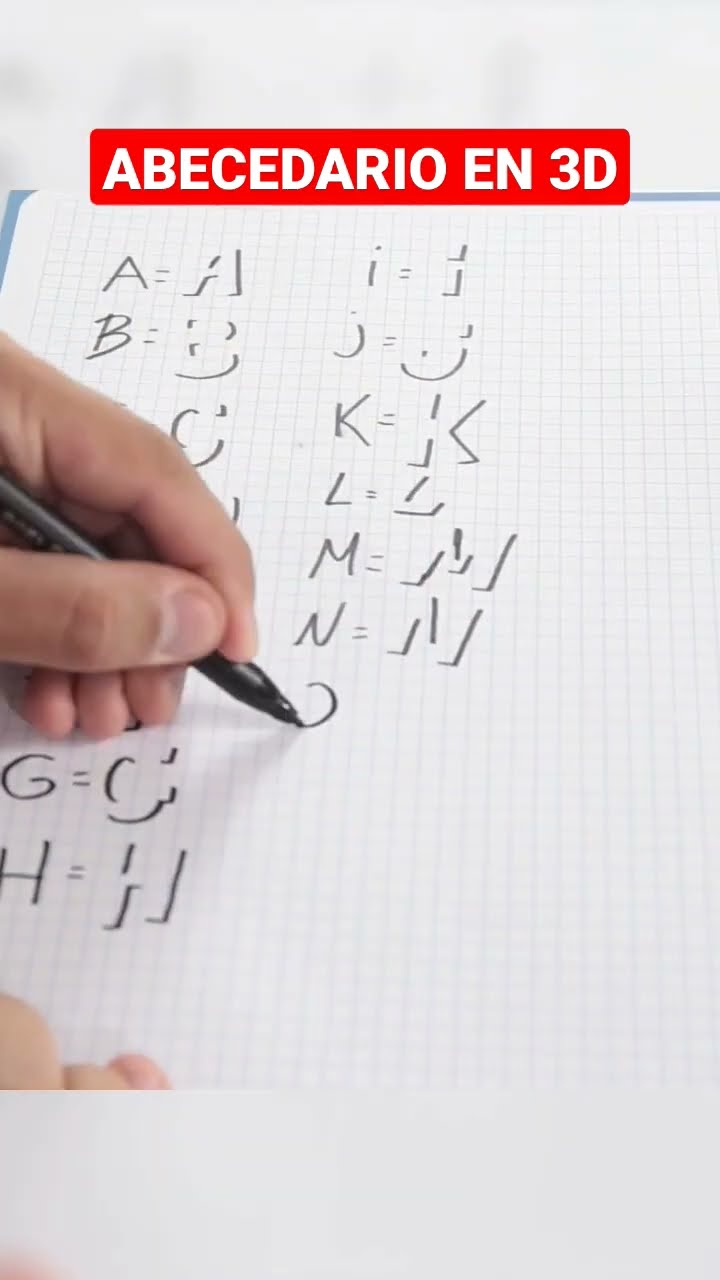 ABECEDARIO EN 3D
A=
B=
G=
H=
i =
j =
K=
L=
M=
N=